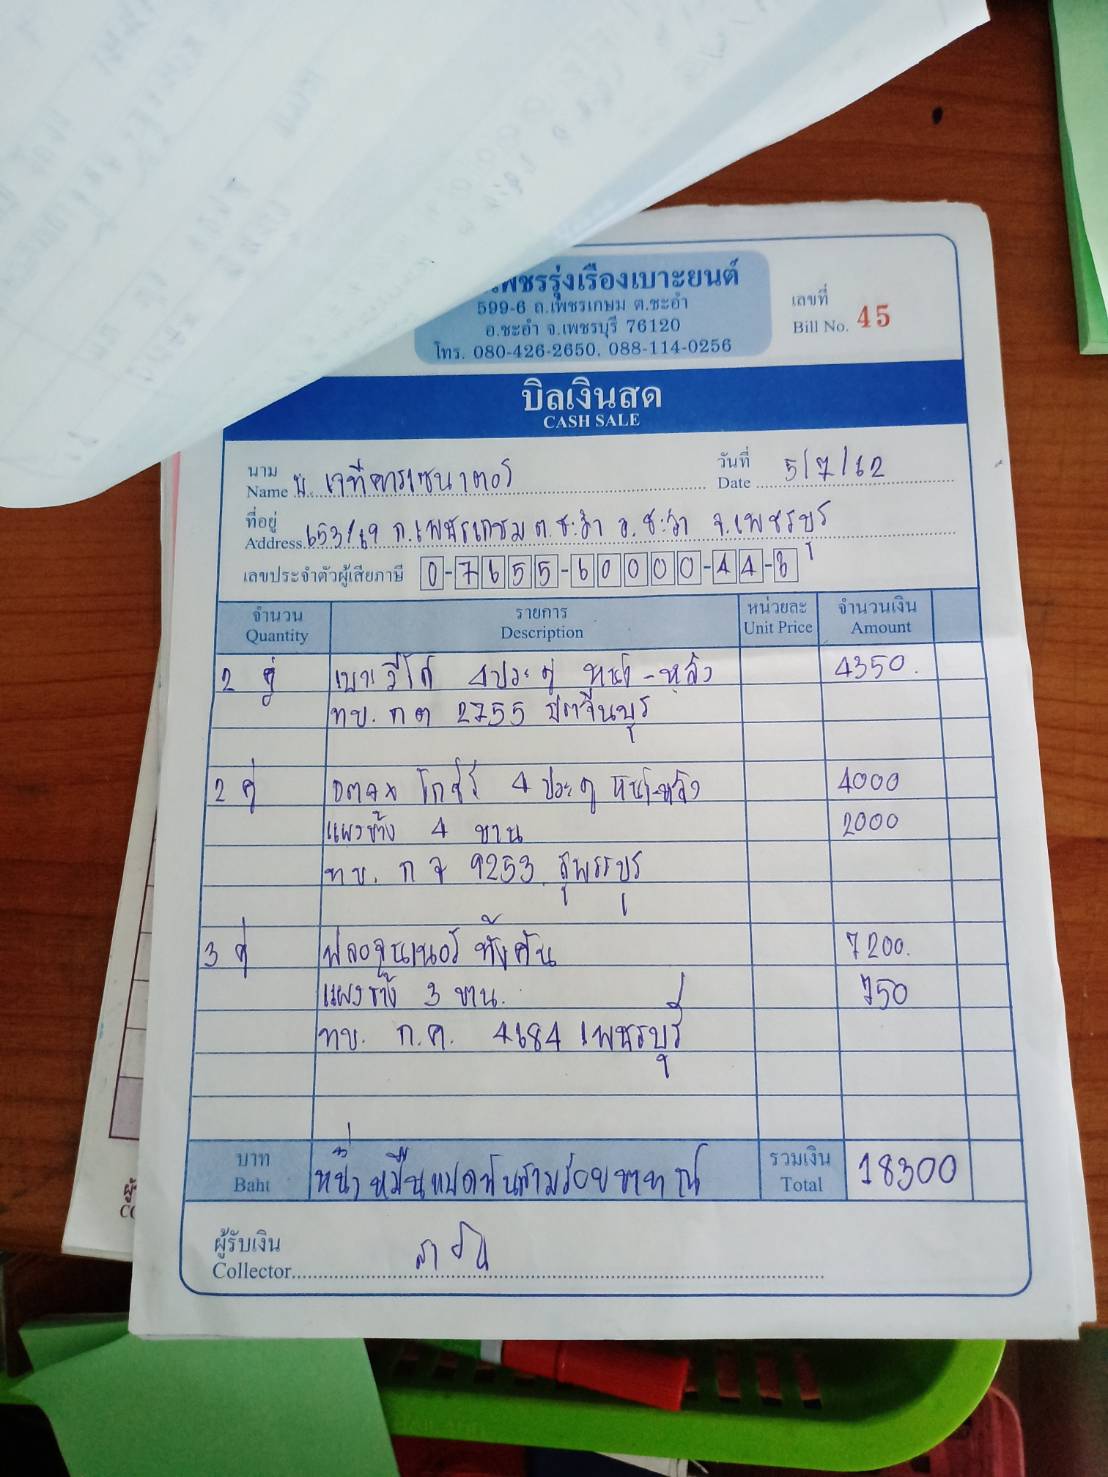 เพชรรุ่งเรืองเบาะยนต์
599-6 ถ.เพชรเกษม ต.ชะอำ
อ.ชะอำ จ.เพชรบุรี 76120
โทร. 080-426-2650, 088-114-0256
เลขที่
Bill No. 45
บิลเงินสด
CASH SALE
นาม
Name บ. เจทีคาร์เซนเตอร์
วันที่
Date 5/7/62
ที่อยู่
Address 653/69 ถ.เพชรเกษม ต.ชะอำ อ.ชะอำ จ.เพชรบุรี
เลขประจำตัวผู้เสียภาษี 0-7655-60000-44-8
จำนวน รายการ หน่วยละ จำนวนเงิน
Quantity Description Unit Price Amount
2 คู่ เบาะวีโก้ 4ประตู หน้า-หลัง 4350.
ทบ. กต 2755 ปราจีนบุรี
2 คู่ 4 ประตู หน้า-หลัง 4000
แผงข้าง 4 บาน 2000
ทบ. ก จ 9253 สุพรรบุรี
3 คู่ ฟลอจูนเนอร์ ทั้งคัน 7200.
แผงข้าง 3 บาน. 750
ทบ. ก.ค. 4684 เพชรบุรี
บาท หนึ่งหมื่นแปดพันสามร้อยบาท รวมเงิน 18300
Baht Total
ผู้รับเงิน
Collector